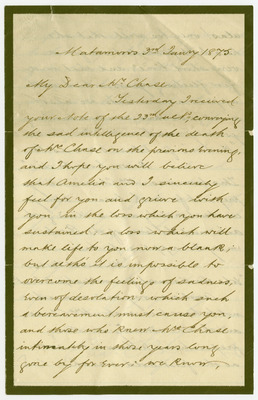 Matamoros 3rd Jany 1875.
My Dear Mr. Chase
Yesterday I received
your Note of the 23rd ulto. conveying
the sad intelligence of the death
of Mrs Chase on the previous Evening
and I hope you will believe
that Amelia and I sincerely
feel for you and grieve with
you in the loss which you have
sustained, a loss which will
make life to you now a blank;
but altho it is impossible to
overcome the feelings of sadness,
Even of desolation, which such
a bereavement must cause you,
and those who knew Mrs Chase
intimately in those years long
gone by for Ever: we know,